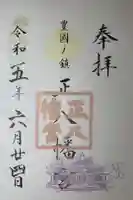 奉拝
豊国ノ鎮
正八幡宮
令和五年六月廿四日